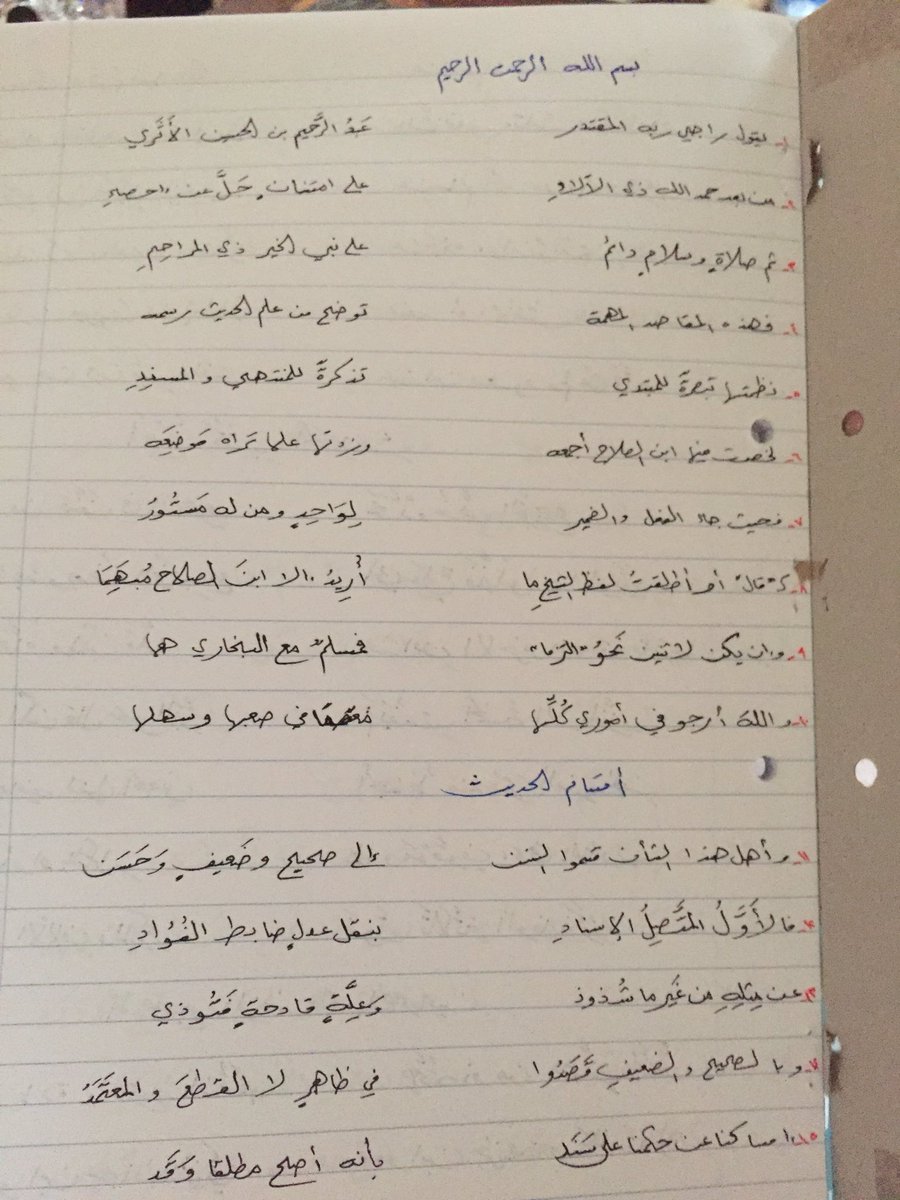 بسم الله الرحمن الرحيم
١- يقول راجي ربه المقتدر عَبْدُ الرَّحيم بن الحسين الأَثَري
٢- من بعد حمد الله ذي الآلاءِ على امتنانٍ جَلَّ عن احصاءِ
٣- ثم صلاةٍ وسلامٍ دائمُ على نبي الخير ذي المراحِمِ
٤- فهذه المقاصد المهمة توضح من علم الحديث رسمه
٥- نظمتها تبصرةً للمبتدي تذكرةً للمنتهي والمسنِدِ
٦- لخصت فيها ابن الصلاح أجمعه وزدتها علما تَراه مَوضِعَه
٧- فحيث جاء الفعل والضمير لِوَاحِدٍ ومن له مَستُورُ
٨- كـ "قال" أو أطلقتُ لفظ الشيخ ما أُرِيدُ الا ابنَ الصلاح مُبهَمَا
٩- وان يكن لاثنين نَحوُ "التزما" فمسلمٌ مع البخاري هما
١٠- والله أرجو في أموري كُلِّها معتصما في صعبها وسهلها
أقسام الحديث
١١- وأهل هذا الشأن قسموا السنن إلى صحيح وضَعِيفٍ وَحَسَن
١٢- فالأَوَّلُ المتَّصِلُ الإسنادِ بنقل عدلٍ ضابط الفُؤادِ
١٣- عن مِثلِهِ مِن غَيرِ ما شُذوذ وَعِلَّةٍ قادحةٍ فَتُوذي
١٤- وبالصحيحِ والضعيفِ قَصَدُوا فِي ظاهرٍ لا القطعَ والمعتَمَدُ
١٥- امساكنا عن حكمنا على سَنَد بأنه أصح مطلقا وَقَد